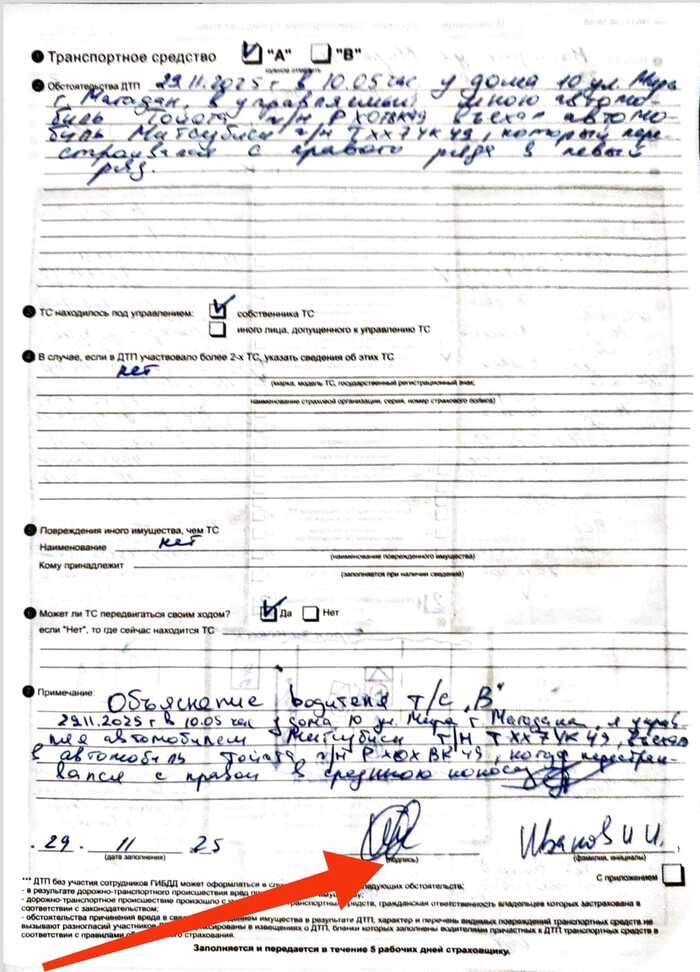 1 Транспортное средство "А" "В"
2 Обстоятельства ДТП 29.11.2025 г в 10.05 час у дома 10 ул. Мира
г. Магадан, в управляемый мною автомо-
биль Тойота г/н въехал автомо-
биль Митсубиси г/н ТХХ7УК 49, который пере-
страивался с правого ряда в левый
ряд.
3 ТС находилось под управлением: собственника ТС
иного лица, допущенного к управлению ТС
4 В случае, если в ДТП участвовало более 2-х ТС, указать сведения об этих ТС
нет
(марка, модель ТС, государственный регистрационный знак,
наименование страховой организации, серия, номер страхового полиса)
5 Повреждения иного имущества, чем ТС
Наименование нет
(наименование поврежденного имущества)
Кому принадлежит
(заполняется при наличии сведений)
6 Может ли ТС передвигаться своим ходом? Да Нет
если "Нет", то где сейчас находится ТС
7 Примечание: Объяснение водителя т/с "В"
29.11.2025 г в 10.05 час у дома 10 ул. Мира г Магадана, я управ-
ляя автомобилем Митсубиси г/н ТХХ7УК 49, въехал
в автомобиль Тойота г/н РХОХВК 49, когда перестраи-
вался с правой в среднюю полосу
29 11 25 Иванов И.И.
(дата заполнения) (подпись) (фамилия, инициалы)
С приложением
*** ДТП без участия сотрудников ГИБДД может оформляться в следующих обстоятельств:
- в результате дорожно-транспортного происшествия вред имуществу;
- дорожно-транспортное происшествие произошло с транспортных средств, гражданская ответственность владельцев которых застрахована в
соответствии с законодательством;
- обстоятельства причинения вреда в имущества в результате ДТП, характер и перечень видимых повреждений транспортных средств не
вызывают разногласий участников в извещении о ДТП, бланки которых заполнены водителями причастных к ДТП транспортных средств в
соответствии с правилами страхования.
Заполняется и передается в течение 5 рабочих дней страховщику.